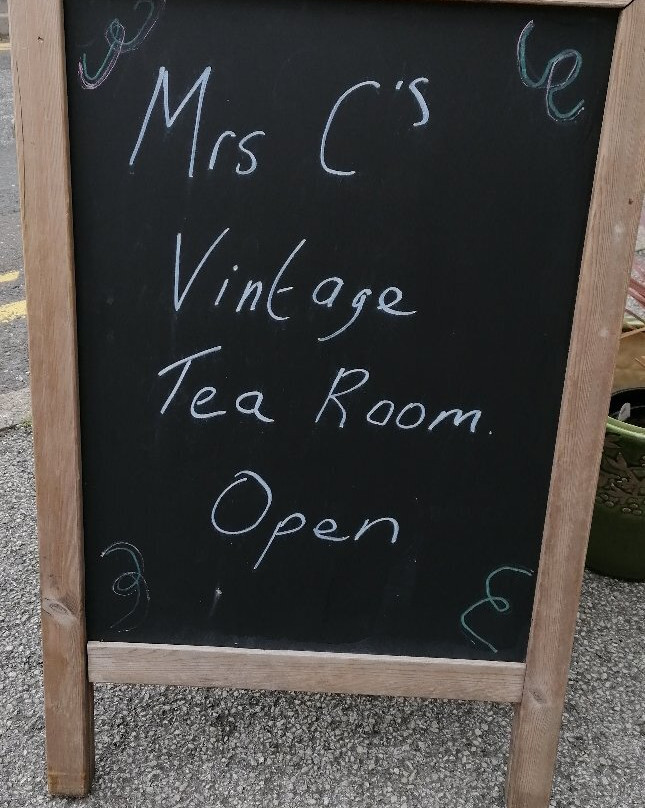 Mrs C's
Vintage
Tea Room.
Open